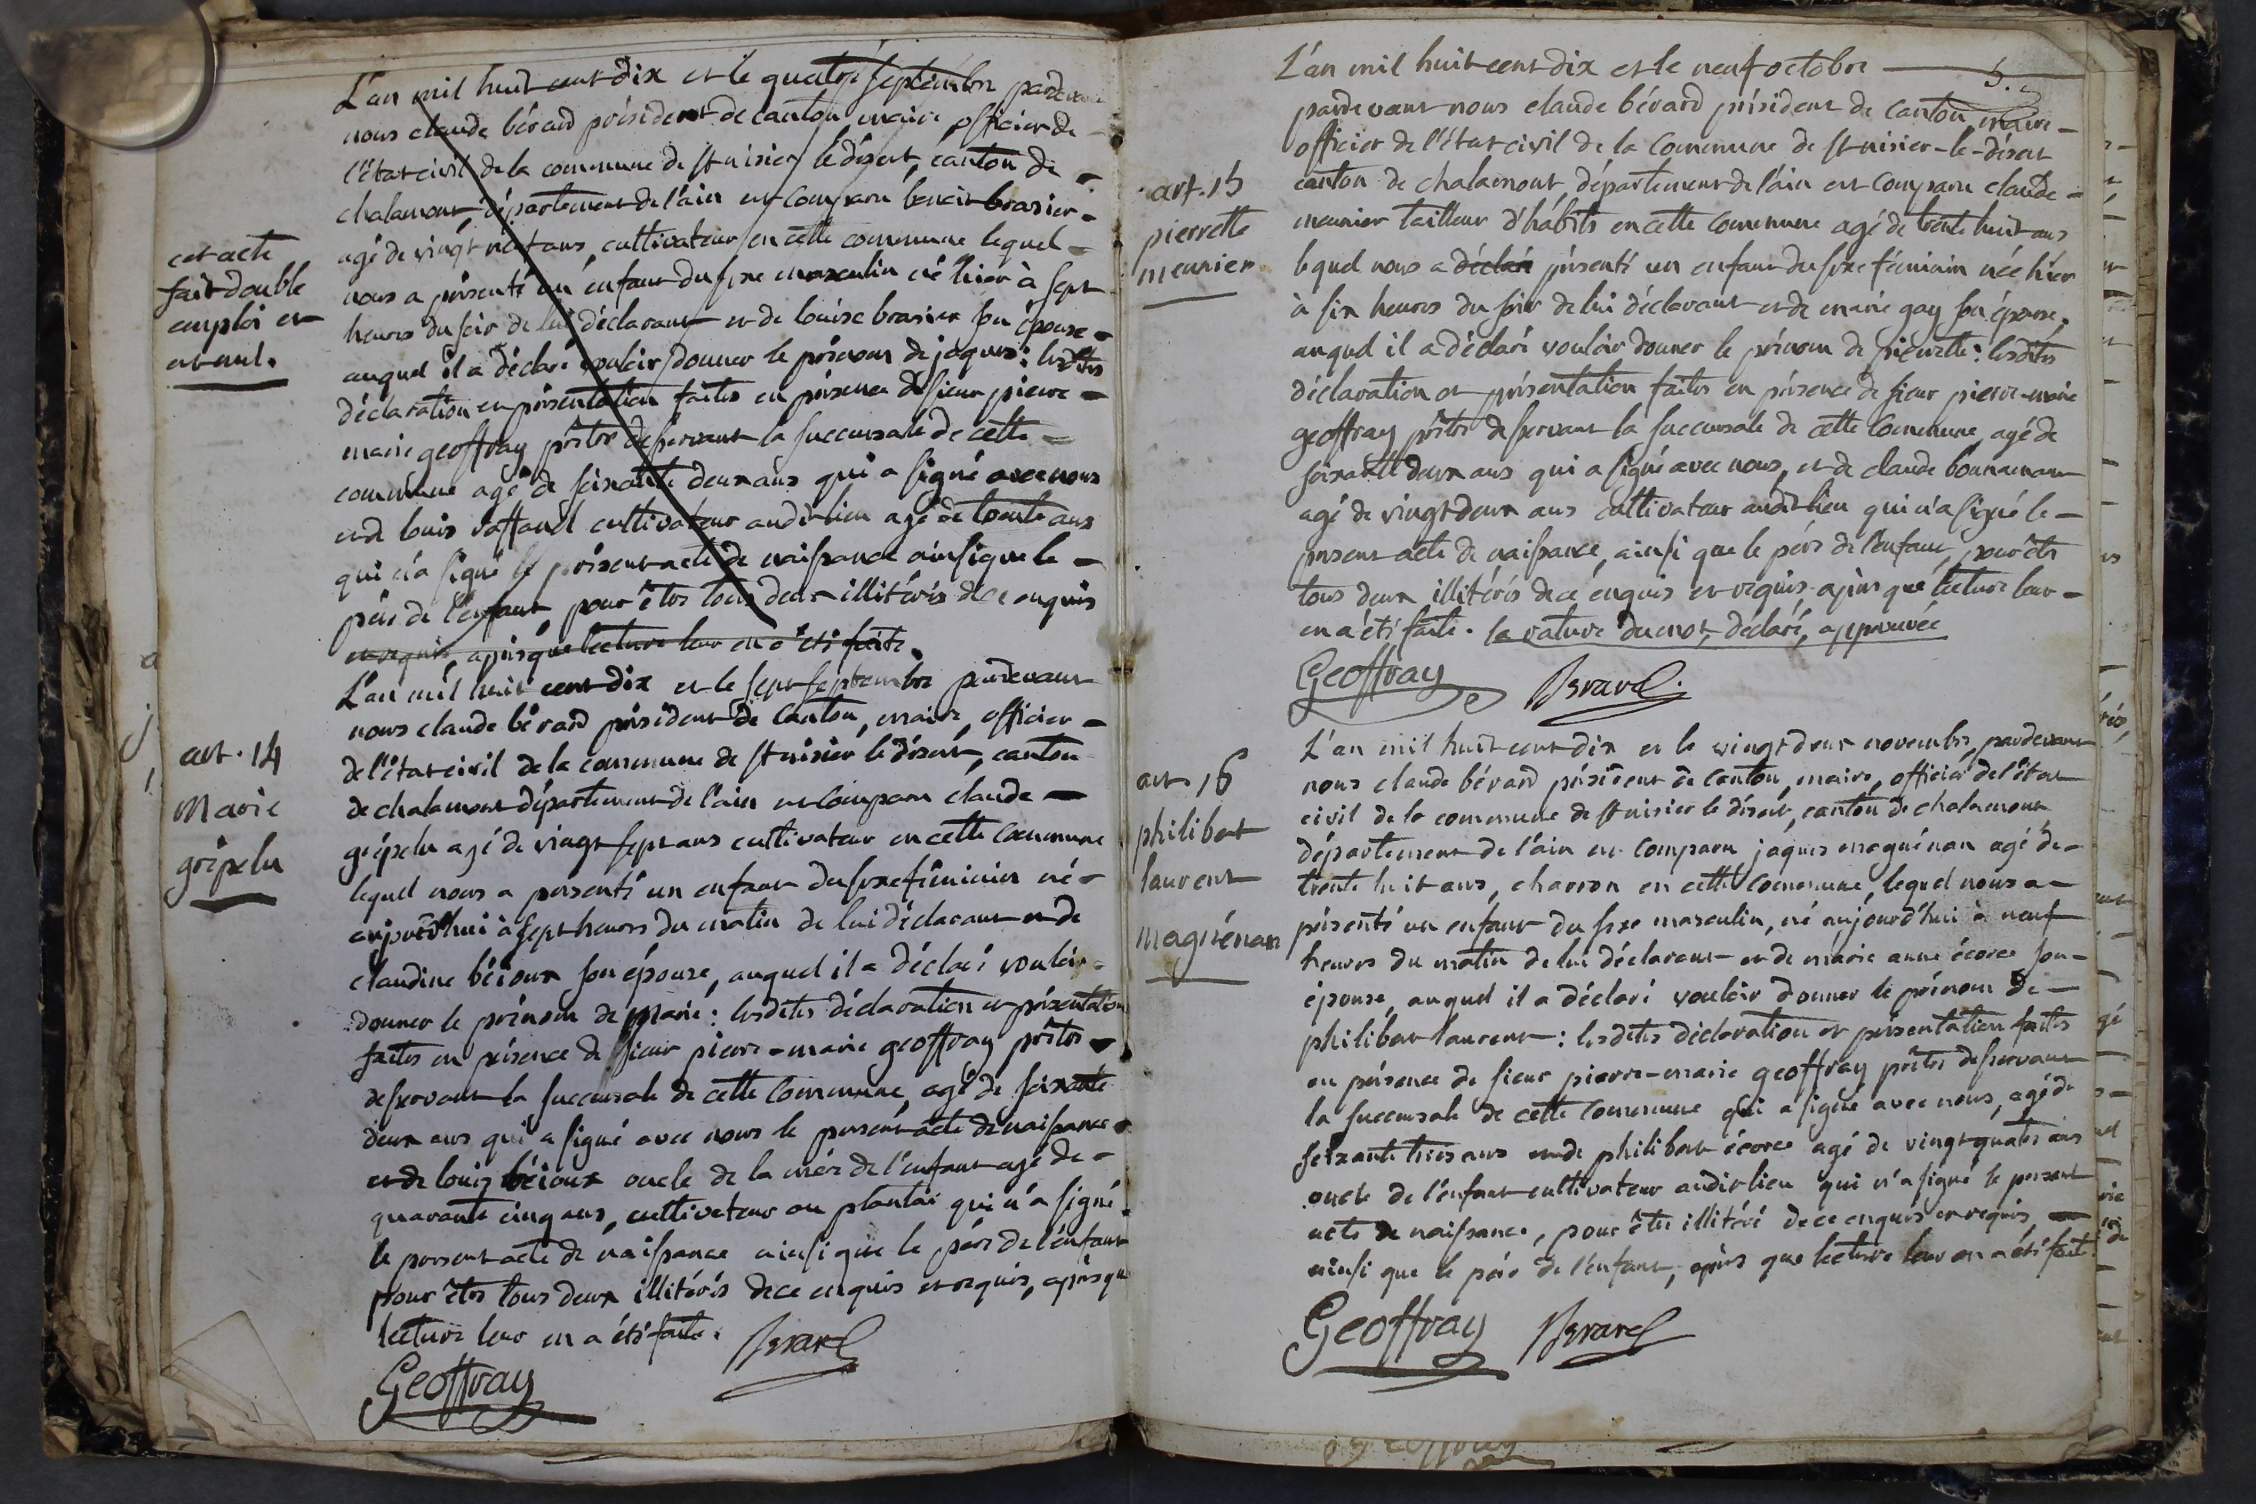 L'an mil huit cent dix et le quatre septembre pardevant
nous claude bérard président de canton maire officier de
l'état civil de la commune de st nisier le désert, canton de
chalamont, département de l'ain est comparu benoit brasier
agé de vingt neuf ans, cultivateur en cette commune lequel
nous a présenté un enfant du sexe masculin né hier à sept
heures du soir de lui déclarant et de louise brasier son épouse
auquel il a déclaré vouloir donner le prénom de jaques: lesdites
déclaration et présentation faites en présence de sieur pierre
marie geoffray prêtre desservant la succursale de cette
commune agé de soixante deux ans qui a signé avec nous
et de louis vaffaud cultivateur audit lieu agé de trente ans
qui n'a signé le présent acte de naissance ainsi que le
père de l'enfant pour être tous deux illitérés de ce enquis
et requis, après que lecture leur en a été faite.
cet acte
fait double
emploi et
est nul.
art. 14
Marie
grépelu
L'an mil huit cent dix et le sept septembre pardevant
nous claude bérard président de canton, maire, officier
de l'état civil de la commune de st nisier le désert, canton
de chalamont département de l'ain est comparu claude
grépelu agé de vingt sept ans cultivateur en cette commune
lequel nous a présenté un enfant du sexe féminin né
aujourd'hui à sept heures du matin de lui déclarant et de
claudine bérioux son épouse, auquel il a déclaré vouloir
donner le prénom de Marie: lesdites déclaration et présentation
faites en présence de sieur pierre-marie geoffray prêtre
desservant la succursale de cette commune, agé de soixante
deux ans qui a signé avec nous le présent acte de naissance
et de louis bérioux oncle de la mère de l'enfant agé de
quarante cinq ans, cultivateur au plantai qui n'a signé
le present acte de naissance ainsi que le père de l'enfant
pour être tous deux illitérés de ce enquis et requis, après que
lecture leur en a été faite.
Geoffray Berard
5.
L'an mil huit cent dix et le neuf octobre
pardevant nous claude bérard président de canton maire
officier de l'état civil de la commune de st nisier-le-désert
canton de chalamont, département de l'ain est comparu claude
meunier tailleur d'habits en cette commune agé de trente huit ans
lequel nous a déclaré présenté un enfant du sexe féminin née hier
à six heures du soir de lui déclarant et de marie gay son épouse,
auquel il a déclaré vouloir donner le prénom de pierrette: lesdites
déclaration et présentation faites en présence de sieur pierre-marie
geoffray prêtre desservant la succursale de cette commune, agé de
soixante deux ans qui a signé avec nous, et de claude bonnamour
agé de vingt deux ans cultivateur audit lieu qui n'a signé le
present acte de naissance, ainsi que le père de l'enfant, pour être
tous deux illitérés de ce enquis et requis après que lecture leur
en a été faite. la rature du mot, déclaré, approuvée
Geoffray Berard.
art. 15
pierrette
meunier
art. 16
philibert
laurent
magnénan
L'an mil huit cent dix et le vingt deux novembre, pardevant
nous claude bérard président de canton, maire, officier de l'état
civil de la commune de st nisier le désert, canton de chalamont
département de l'ain est comparu jaques magnénan agé de
trente huit ans, charron en cette commune, lequel nous a
présenté un enfant du sexe masculin, né aujourd'hui à neuf
heures du matin de lui déclarant et de marie anne écorce son
épouse, auquel il a déclaré vouloir donner le prénom de
philibert laurent: lesdites déclaration et présentation faites
en présence de sieur pierre-marie geoffray prêtre desservant
la succursale de cette commune qui a signé avec nous, agé de
soixante trois ans et de philibert écorce agé de vingt quatre ans
oncle de l'enfant cultivateur audit lieu qui n'a signé le present
acte de naissance, pour être illitéré de ce enquis et requis,
ainsi que le père de l'enfant, après que lecture leur en a été faite.
Geoffray Berard